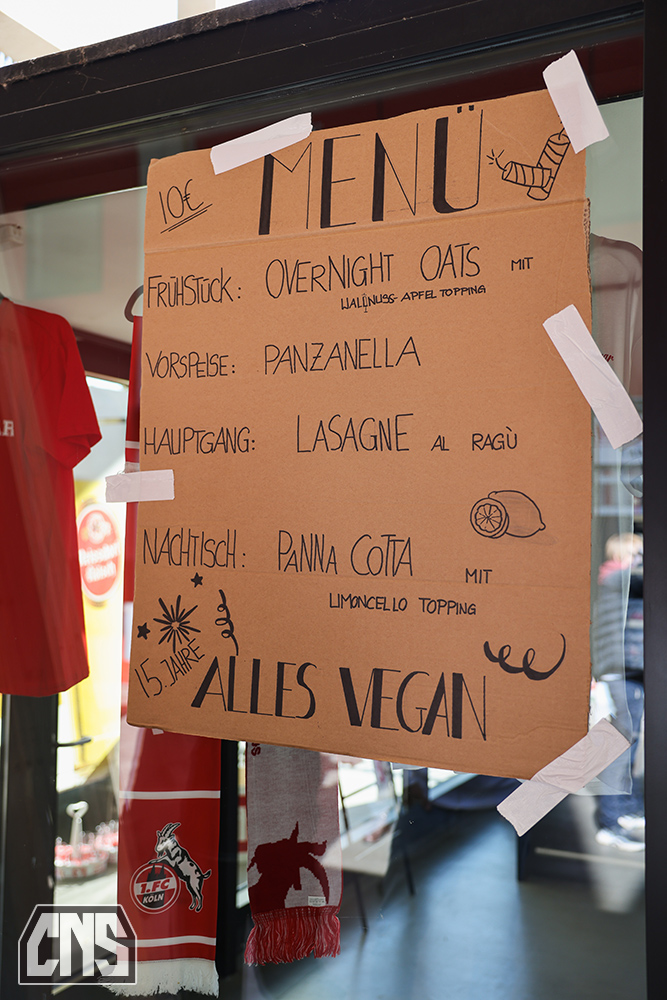 10€
MENÜ
FRÜHSTÜCK: OVERNIGHT OATS MIT
WALLNUSS-APFEL TOPPING
VORSPEISE: PANZANELLA
HAUPTGANG: LASAGNE AL RAGÙ
NACHTISCH: PANNA COTTA MIT
LIMONCELLO TOPPING
15. JAHRE
ALLES VEGAN
1.FC
KÖLN
CNS